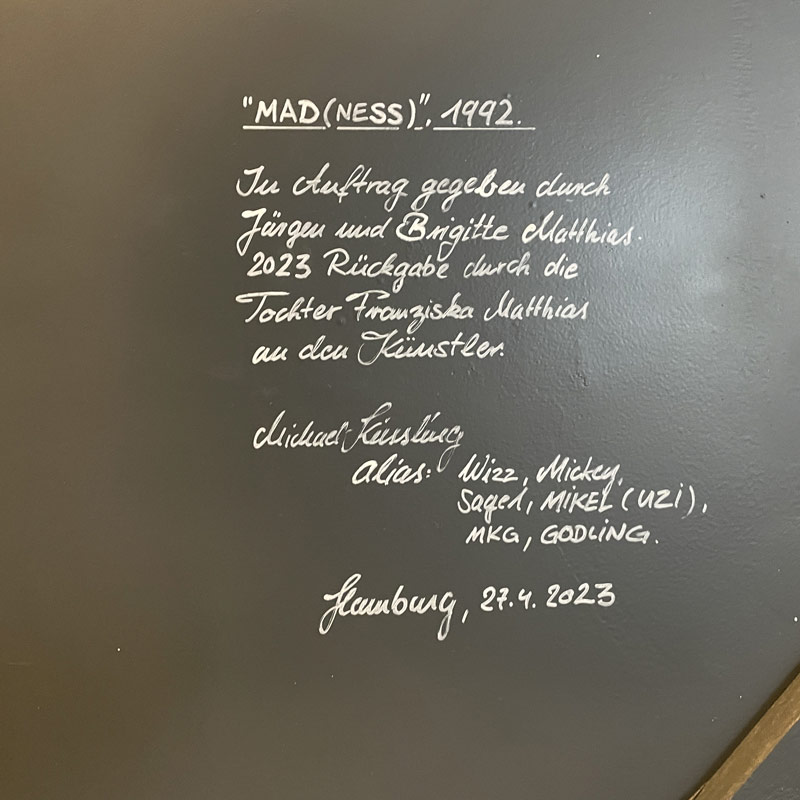 "MAD(NESS)", 1992.
In Auftrag gegeben durch
Jürgen und Brigitte Matthias.
2023 Rückgabe durch die
Tochter Franziska Matthias
an den Künstler.
Michael
alias: Wizz, Mickey,
MIKEL (UZI),
MKG, GODLiNG.
Hamburg, 27.4.2023